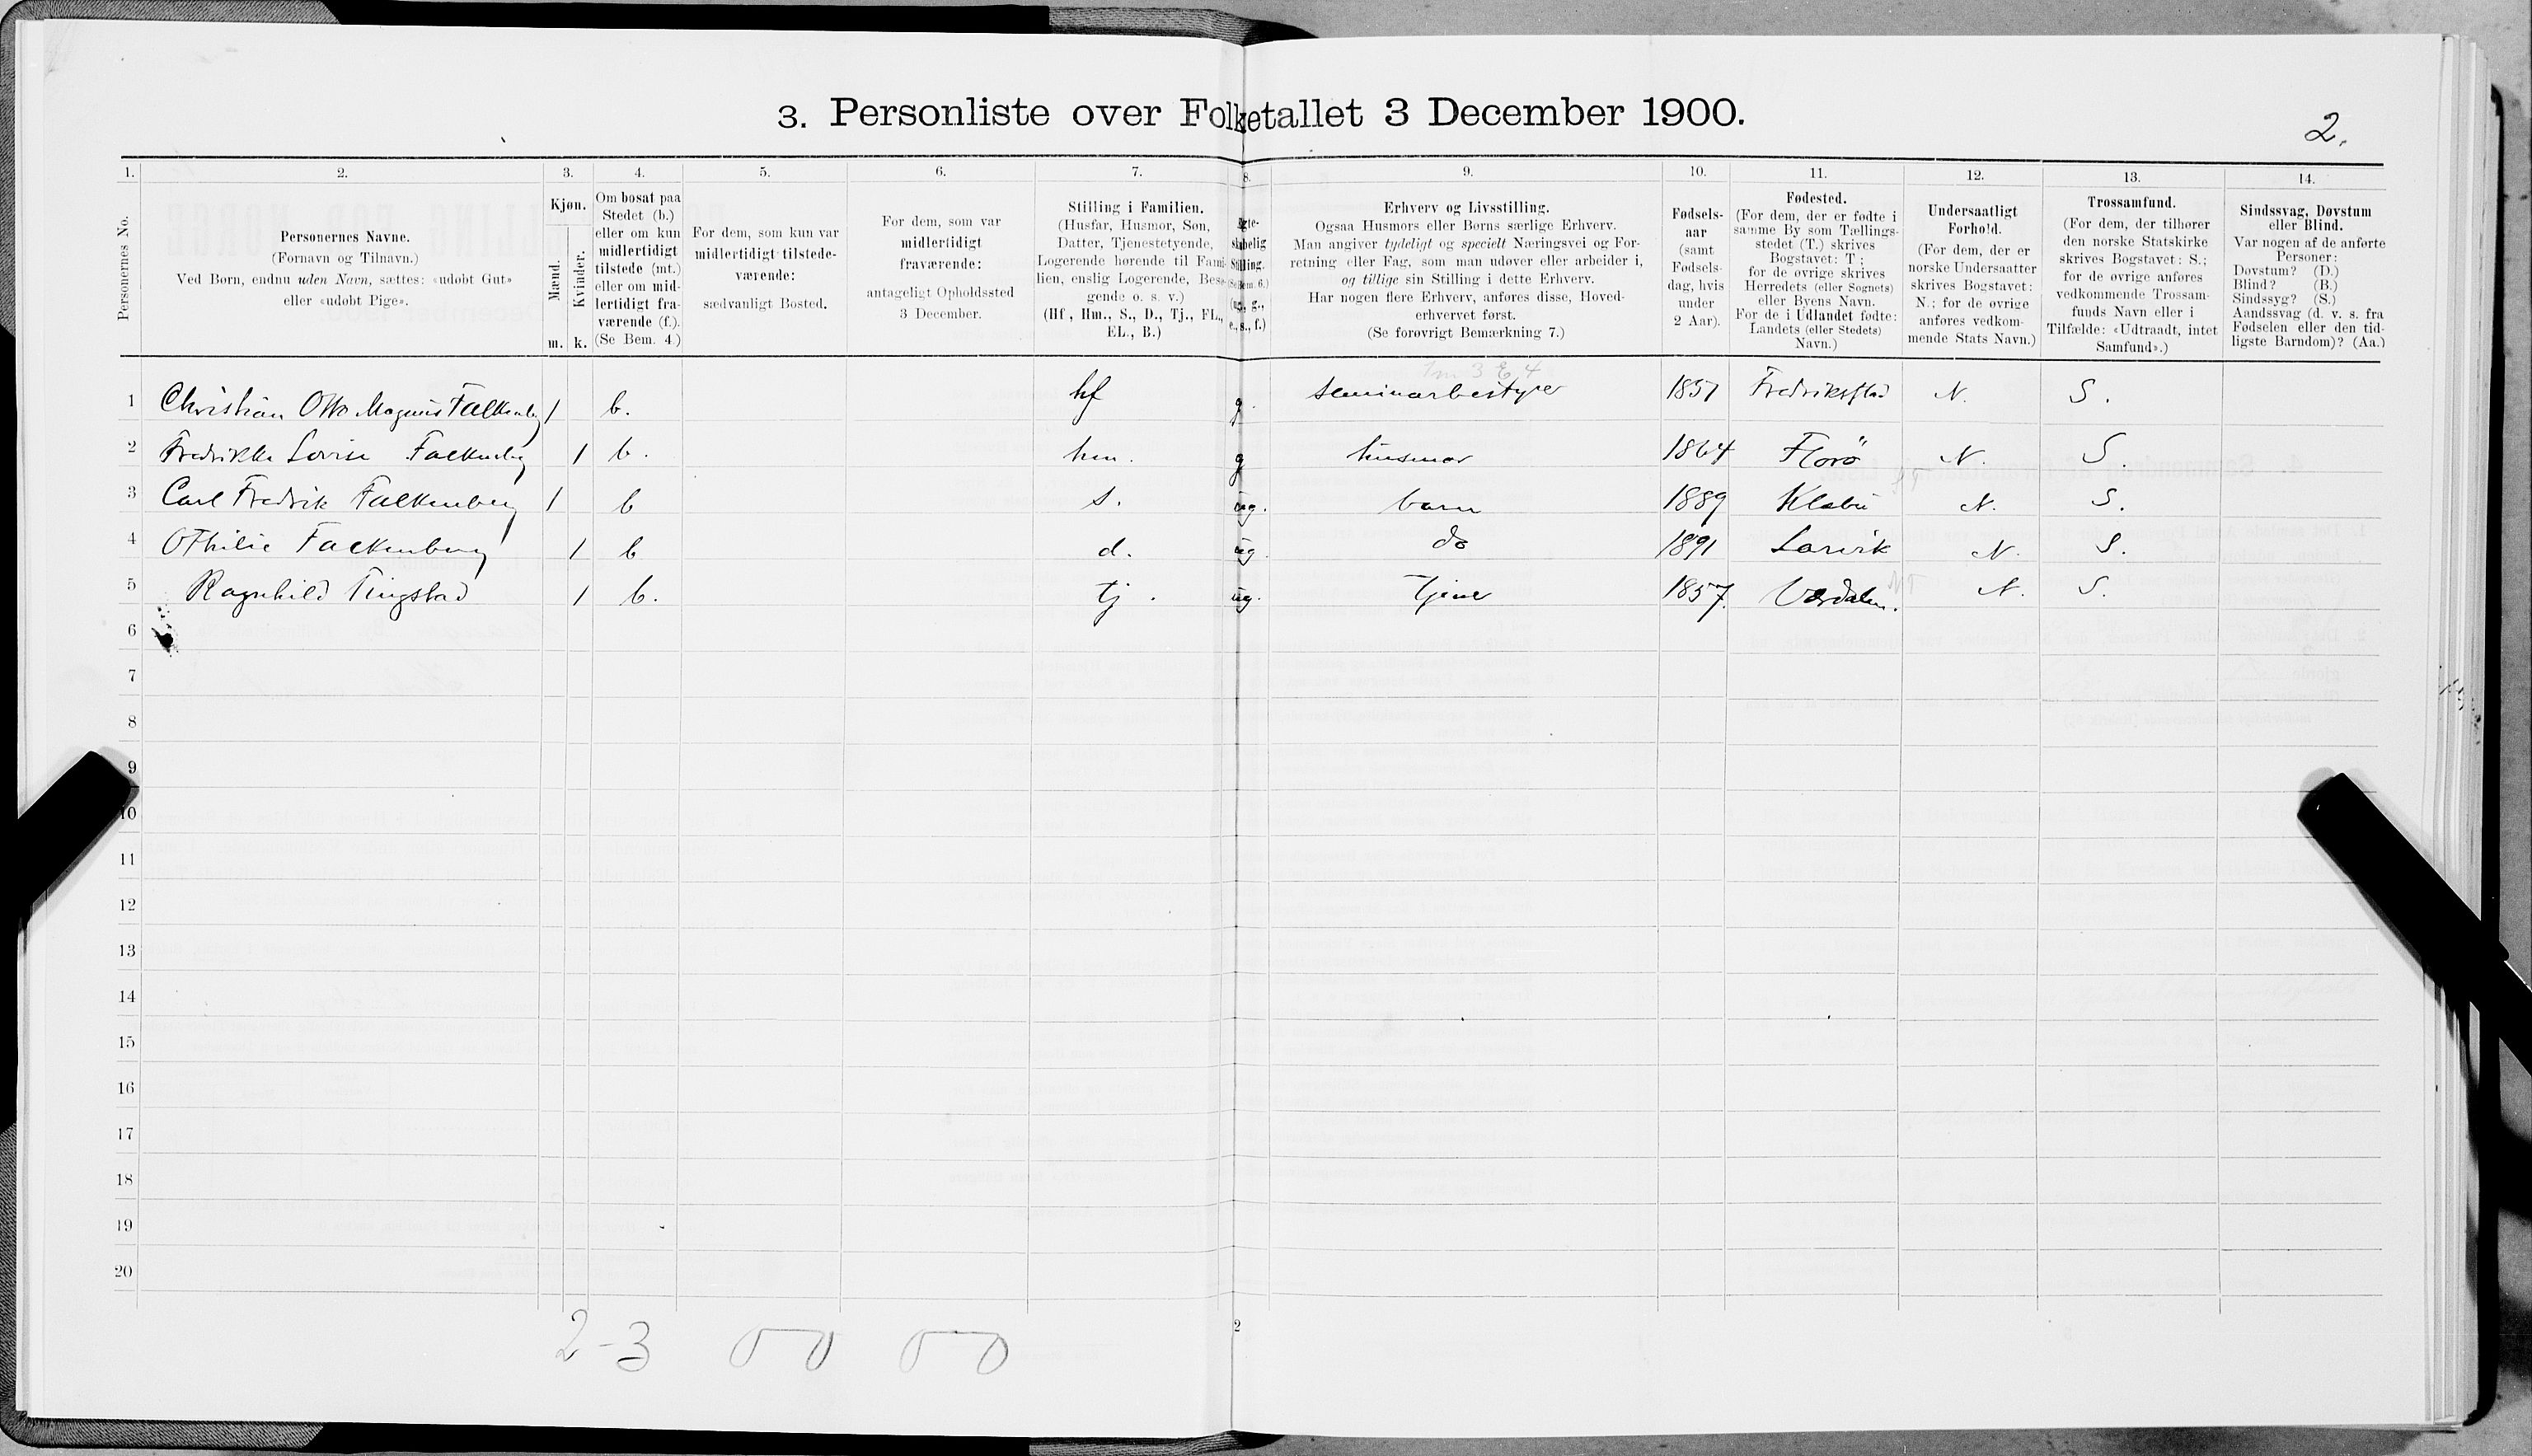 3. Personliste over Folketallet 3 December 1900.
2.
1.
2.
3.
4.
5.
6.
7.
8.
9.
10.
11.
12.
13.
14.
Personernes No.
Personernes Navne.
(Fornavn og Tilnavn.)
Ved Børn, endnu uden Navn, sættes: «udøbt Gut»
eller «udøbt Pige».
Kjøn.
Mænd.
Kvinder.
m.
k.
Om bosat paa
Stedet (b.)
eller om kun
midlertidigt
tilstede (mt.)
eller om mid-
lertidigt fra-
værende (f.).
(Se Bem. 4.)
For dem, som kun var
midlertidigt tilstede-
værende:
sædvanligt Bosted.
For dem, som var
midlertidigt
fraværende:
antageligt Opholdssted
3 December.
Stilling i Familien.
(Husfar, Husmor, Søn,
Datter, Tjenestetyende,
Logerende hørende til Fami-
lien, enslig Logerende, Besø-
gende o. s. v.)
(Hf., Hm., S., D., Tj., FL.,
EL., B.)
Ægte-
skabelig
Stilling.
(Se Bem. 6.)
(ug., g.,
e., s., f.)
Erhverv og Livsstilling.
Ogsaa Husmors eller Børns særlige Erhverv.
Man angiver tydeligt og specielt Næringsvei og For-
retning eller Fag, som man udøver eller arbeider i,
og tillige sin Stilling i dette Erhverv.
Har nogen flere Erhverv, anføres disse, Hoved-
erhvervet først.
(Se forøvrigt Bemærkning 7.)
Fødsels-
aar
(samt
Fødsels-
dag, hvis
under
2 Aar).
Fødested.
(For dem, der er fødte i
samme By som Tællings-
stedet (T.) skrives
Bogstavet: T;
for de øvrige skrives
Herredets (eller Sognets)
eller Byens Navn.
For de i Udlandet fødte:
Landets (eller Stedets)
Navn.)
Undersaatligt
Forhold.
(For dem, der er
norske Undersaatter
skrives Bogstavet:
N.; for de øvrige
anføres vedkom-
mende Stats Navn.)
Trossamfund.
(For dem, der tilhører
den norske Statskirke
skrives Bogstavet: S.;
for de øvrige anføres
vedkommende Trossam-
funds Navn eller i
Tilfælde: «Udtraadt, intet
Samfund».)
Sindssvag, Døvstum
eller Blind.
Var nogen af de anførte
Personer:
Døvstum? (D.)
Blind? (B.)
Sindssyg? (S.)
Aandssvag (d. v. s. fra
Fødselen eller den tid-
ligste Barndom)? (Aa.)
1 Christian Otto Magnus Falkenberg 1 b. hf g. seminarbestyrer 1851 Fredriksstad N. S.
2 Fredrikke Lovise Falkenberg 1 b. hm. g husmor 1864 Florö N. S.
3 Carl Fredrik Falkenberg 1 b s. ug. barn 1889 Klæbu N. S.
4 Othilie Falkenberg 1 b d. ug. do 1891 Larvik N. S.
5 Ragnhild Tingstad 1 b. tj. ug. Tjener 1857. Værdalen. N. S.
6
7
8
9
10
11
12
13
14
15
16
17
18
19
20
2-3 0 0 0 0
2